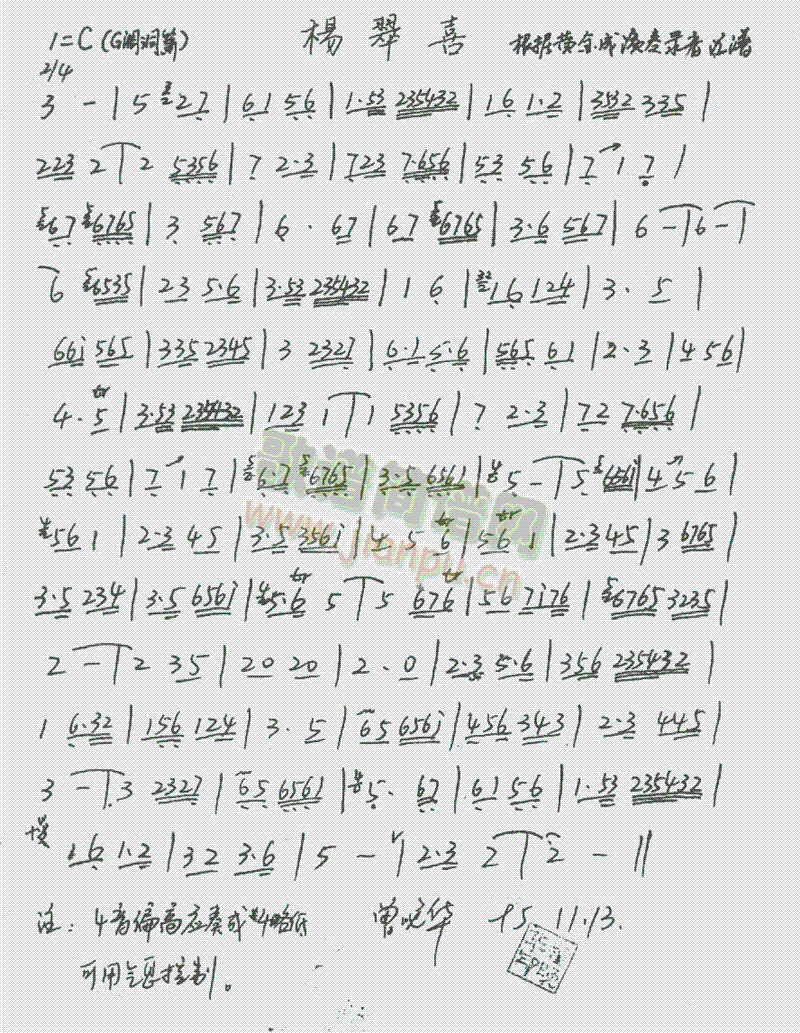 1=C (G调洞箫) 楊翠喜 根据黄金成演奏录音记谱
2/4
3 - | 5 27 | 61 56 | 1·53 235432 | 16 1·2 | 3532 335 |
223 2 | 2 5356 | 7 2·3 | 723 7·656 | 53 56 | 7 1 7 |
67 6765 | 3 567 | 6 · 67 | 67 6765 | 3·6 567 | 6 - | 6 - |
6 6535 | 23 5·6 | 3·53 235432 | 1 6 | 16 124 | 3 · 5 |
66i 565 | 335 2345 | 3 2327 | 6·1 5·6 | 565 61 | 2·3 | 4 56 |
4 · 5 tr | 3·53 235432 | 123 1 | 1 5356 | 7 2·3 | 72 7·656 |
53 56 | 7 1 7 | 6·7 6765 | 3·5 6561 | 5 - | 5 656i | 4 5 6 |
56 1 | 2·3 45 | 3·5 356i | 4 · 5 6 tr | 56 tr 1 | 2·3 45 | 3 6765 |
3·5 234 | 3·5 656i | 5·6 tr 5 | 5 676 tr | 56 7i76 | 6765 3235 |
2 - | 2 35 | 20 20 | 2 · 0 | 2·3 5·6 | 356 235432 |
1 6·32 | 156 124 | 3 · 5 | 65 656i | 456 343 | 2·3 445 |
3 - | 3 2327 | 65 6561 | 5 · 67 | 61 56 | 1·53 235432 |
慢 16 1·2 | 32 3·6 | 5 - | 2·3 2 | 2 - ||
注: 4音偏高应奏成#4略低 曾晓华 95.11.13.
可用气息控制。
歌谱简谱网
www.jianpu.cn